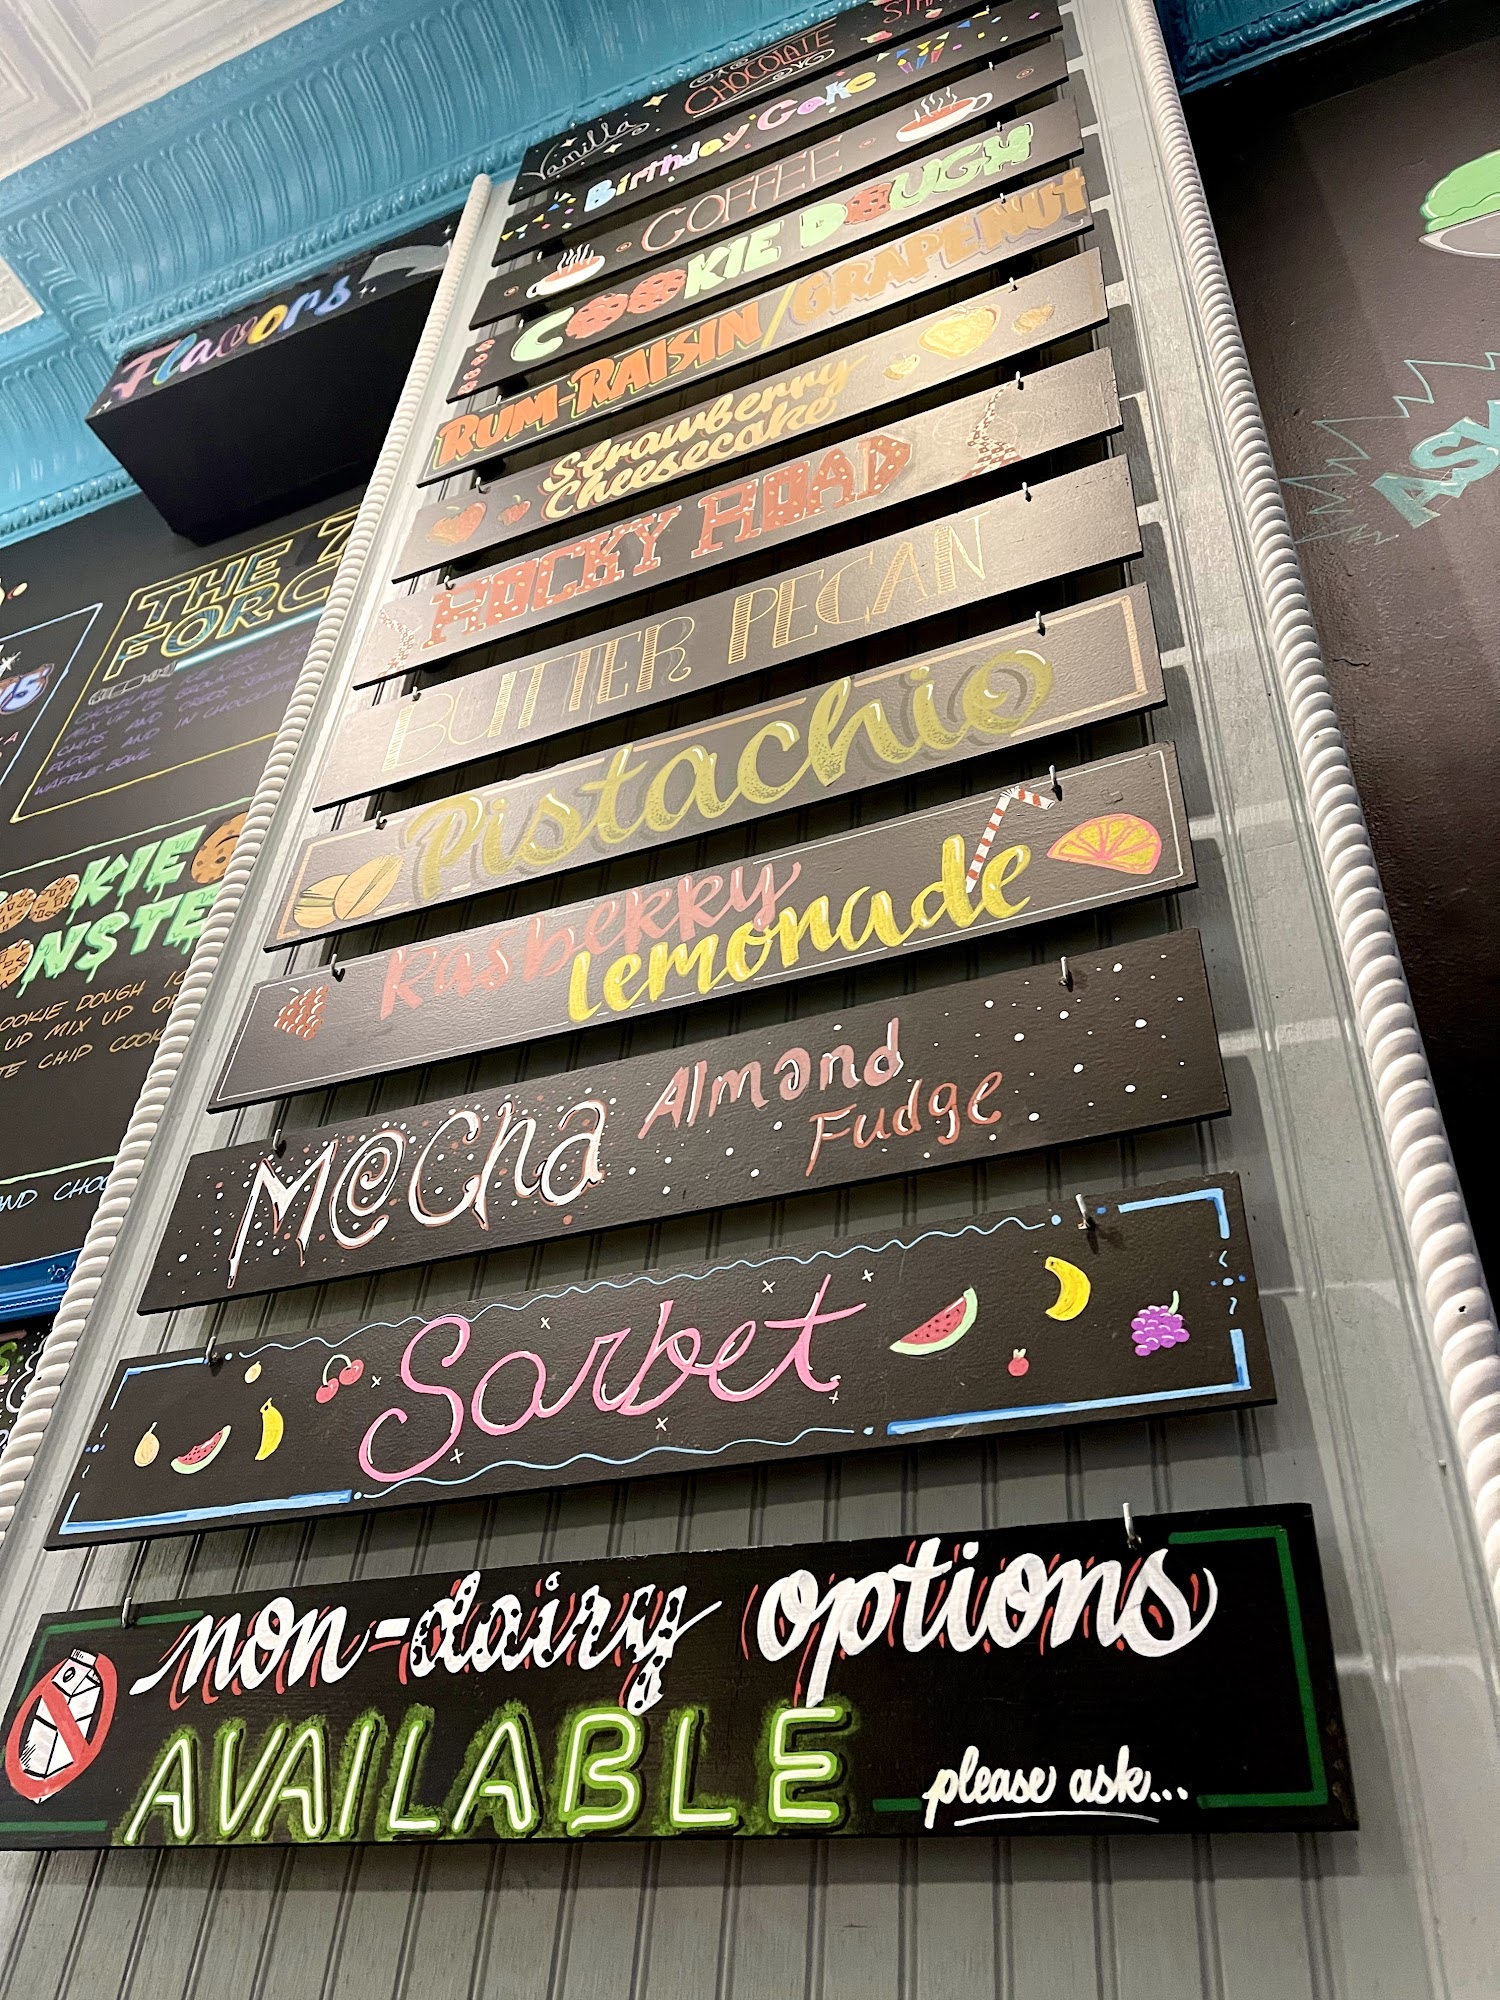 Vanilla CHOCOLATE
Birthday Cake
COFFEE
COOKIE DOUGH
RUM-RAISIN/GRAPENUT
Strawberry
Cheesecake
ROCKY ROAD
BUTTER PECAN
Pistachio
Raspberry
Lemonade
Mocha Almond
Fudge
Sorbet
non-dairy options
AVAILABLE please ask...
Flavors
THE
FORC
CHOCOLATE ICE CREAM
MIX UP OF BROWNIES,
CHIPS AND OREOS SERVED
FUDGE AND IN CHOCOLAT
WAFFLE BOWL
OOKIE
ONSTE
OOKIE DOUGH IC
UP MIX UP OF
TE CHIP COOK
AND CHOC
ASK